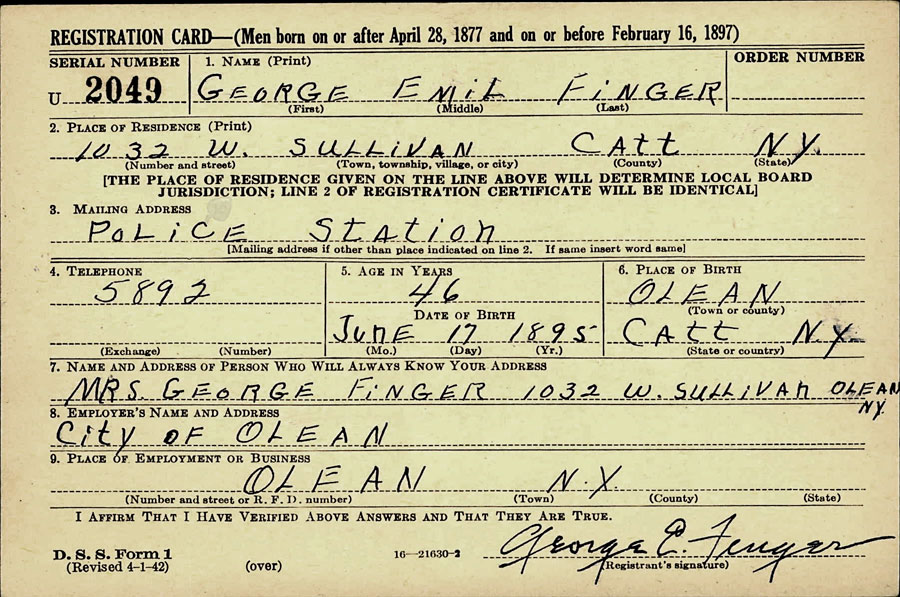 REGISTRATION CARD—(Men born on or after April 28, 1877 and on or before February 16, 1897)
SERIAL NUMBER 1. NAME (Print) ORDER NUMBER
U 2049 GEORGE EMIL FINGER
(First) (Middle) (Last)
2. PLACE OF RESIDENCE (Print)
1032 W. SULLIVAN CATT N.Y.
(Number and street) (Town, township, village, or city) (County) (State)
[THE PLACE OF RESIDENCE GIVEN ON THE LINE ABOVE WILL DETERMINE LOCAL BOARD
JURISDICTION; LINE 2 OF REGISTRATION CERTIFICATE WILL BE IDENTICAL]
3. MAILING ADDRESS
POLICE STATION
[Mailing address if other than place indicated on line 2. If same insert word same]
4. TELEPHONE 5. AGE IN YEARS 6. PLACE OF BIRTH
5892 46 OLEAN
DATE OF BIRTH (Town or county)
JUNE 17 1895 CATT N.Y.
(Exchange) (Number) (Mo.) (Day) (Yr.) (State or country)
7. NAME AND ADDRESS OF PERSON WHO WILL ALWAYS KNOW YOUR ADDRESS
MRS. GEORGE FINGER 1032 W. SULLIVAN OLEAN
N.Y.
8. EMPLOYER'S NAME AND ADDRESS
CITY OF OLEAN
9. PLACE OF EMPLOYMENT OR BUSINESS
OLEAN N.Y.
(Number and street or R. F. D. number) (Town) (County) (State)
I AFFIRM THAT I HAVE VERIFIED ABOVE ANSWERS AND THAT THEY ARE TRUE.
George E. Finger
D. S. S. Form 1 16—21630-2 (Registrant's signature)
(Revised 4-1-42) (over)